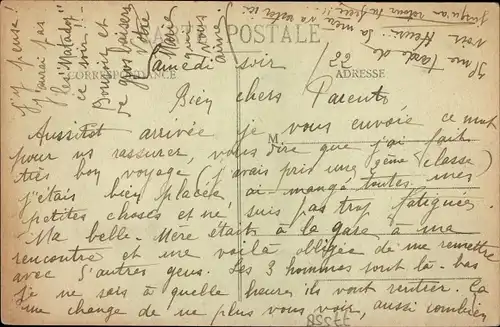 CARTE POSTALE
CORRESPONDANCE
ADRESSE
Samedi soir
Bien chers Parents
Aussitôt arrivée je vous envoie ce mot
pour vs rassurer, vous dire que j'ai fait
très bon voyage (j'avais pris une 2ème classe)
j'étais bien placée, ai mangé toutes mes
petites choses et ne suis pas trop fatiguée.
Ma belle-Mère était à la gare à ma
rencontre et me voilà obligée de me remettre
avec d'autres gens. Les 3 hommes sont là-bas
je ne sais à quelle heure ils vont rentrer. Ça
me change de ne plus vous voir, aussi combien
j'y pense.
J'aurai pas
"les Matador"
ce soir!
Bonsoir et
de gros baisers
Votre
Marie
qui
vous
aime
M